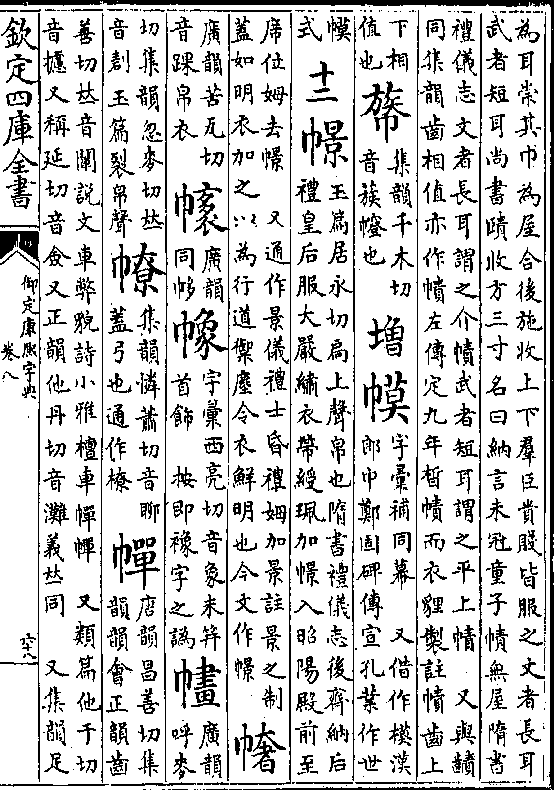 為耳崇其巾為屋合後施收上下羣臣貴賤皆服之文者長耳
武者短耳尚書賾收方三寸名曰納言未冠童子幘無屋隋書
禮儀志文者長耳謂之介幘武者短耳謂之平上幘 又與齰
同集韻齒相值亦作幘左傳定九年晳幘而衣貍製註幘齒上
下相
值也
集韻千木切
音蔟幒也
增幙
字彙補同幕 又借作模漢
郎中鄭固碑傳宣孔業作世
幙
式
十二
幜
玉篇居永切扃上聲帛也隋書禮儀志後齊納后
禮皇后服大嚴繡衣帶綬珮加幜入昭陽殿前至
席位姆去幜 又通作景儀禮士昏禮姆加景註景之制
蓋如明衣加之以為行道禦塵令衣鮮明也今文作幜
廣韻苦瓦切
音踝帛衣
廣韻
同
字彙西亮切音象未笄
首飾 按即襐字之譌
廣韻
呼麥
切集韻忽麥切𠀤
音劃玉篇裂帛聲
集韻憐蕭切音聊
蓋弓也通作橑
幝
唐韻昌善切集
韻韻會正韻齒
善切𠀤音闡說文車弊貌詩小雅檀車幝幝 又類篇他干切
音攤又稱延切音又正韻他丹切音灘義𠀤同 又集韻足
欽定四庫全書
御定康熙字典
卷八